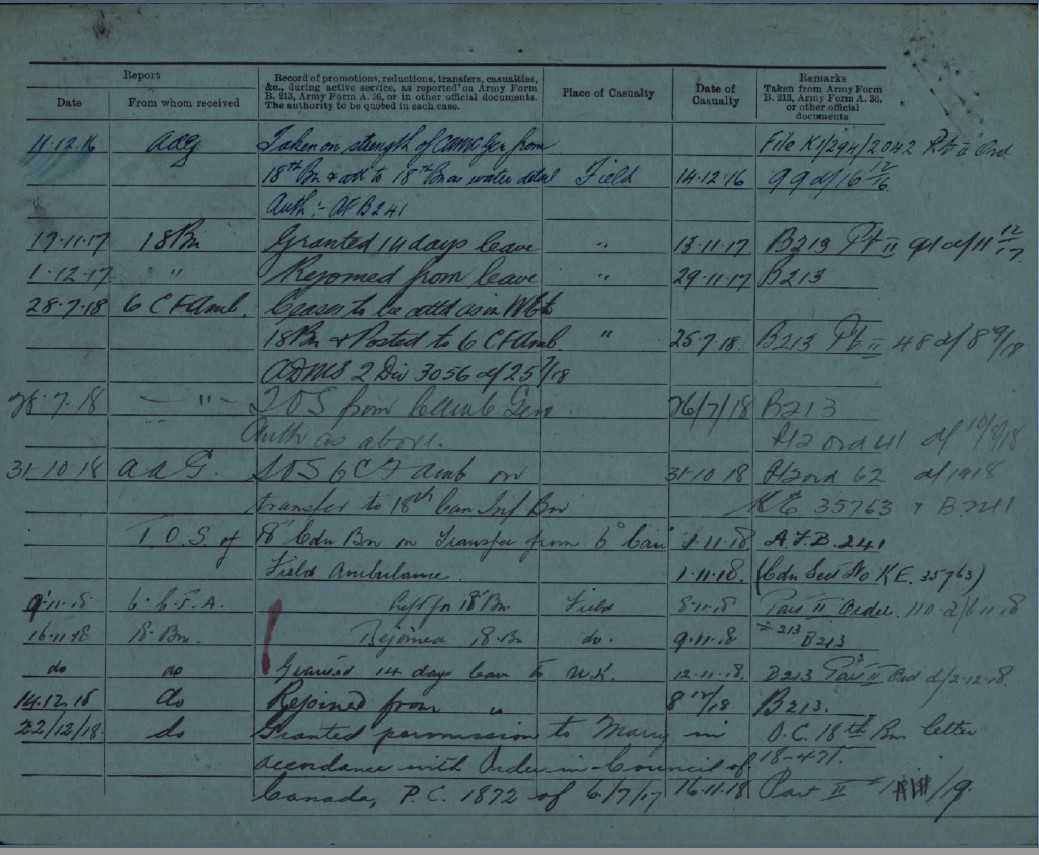 Report
Record of promotions, reductions, transfers, casualties, &c., during active service, as reported on Army Form B. 213, Army Form A. 36, or in other official documents. The authority to be quoted in each case.
Place of Casualty
Date of Casualty
Remarks
Taken from Army Form B. 213, Army Form A. 36, or other official documents
Date
From whom received
11.12.16 AAG Taken on strength of from File K1/294/2042 Pt II Ord
18th Bn & att to 18th Bn as water detail Field 14.12.16 99 d/16 12/16
Auth :- AFB 241
17.11.17 18 Bn Granted 14 days leave " 13.11.17 B213 Pt II 91 d/11 12/17
1.12.17 " Rejoined from leave " 29.11.17 B213
28.7.18 6 C F Amb. Ceases to be attd as in
18 Bn & Posted to 6 C F Amb " 25.7.18. B213 Pt II 48 d/8 9/18
ADMS 2 Div 3056 d/25 7/18
28.7.18 — " — TOS from Gen 26/7/18 B213
Auth as above. Pt2 ord 41 d/ 10/8/18
31.10 18 AAG. SOS 6 C F Amb on 31.10 18 Pt2 ord 62 d/1918
transfer to 18th Can Inf Bn KE 35763 & B241
T.O.S. of 18 Cdn Bn on Transfer from 6 Can 1.11.18. A.F.B. 241
Field Ambulance. 1.11.18. (Cdn Sect No KE. 35763)
9.11.18 6. C. F. A. Left for 18 Bn Field 8.11.18 Part II Order. 110 d/6.11.18
16.11.18 18. Bn. Rejoined 18 Bn do. 9.11.18 213 B213
do do Granted 14 days leave to U.K. 12.11.18. B213 Part II Ord d/2.12.18.
14.12.18 do Rejoined from " 8 12/18 B213.
22/12/18. do Granted permission to Marry in O.C. 18th Bn letter
accordance with Order-in-Council of 18-471.
Canada, P.C. 1872 of 6/7/17 16.11.18 Part II /19.